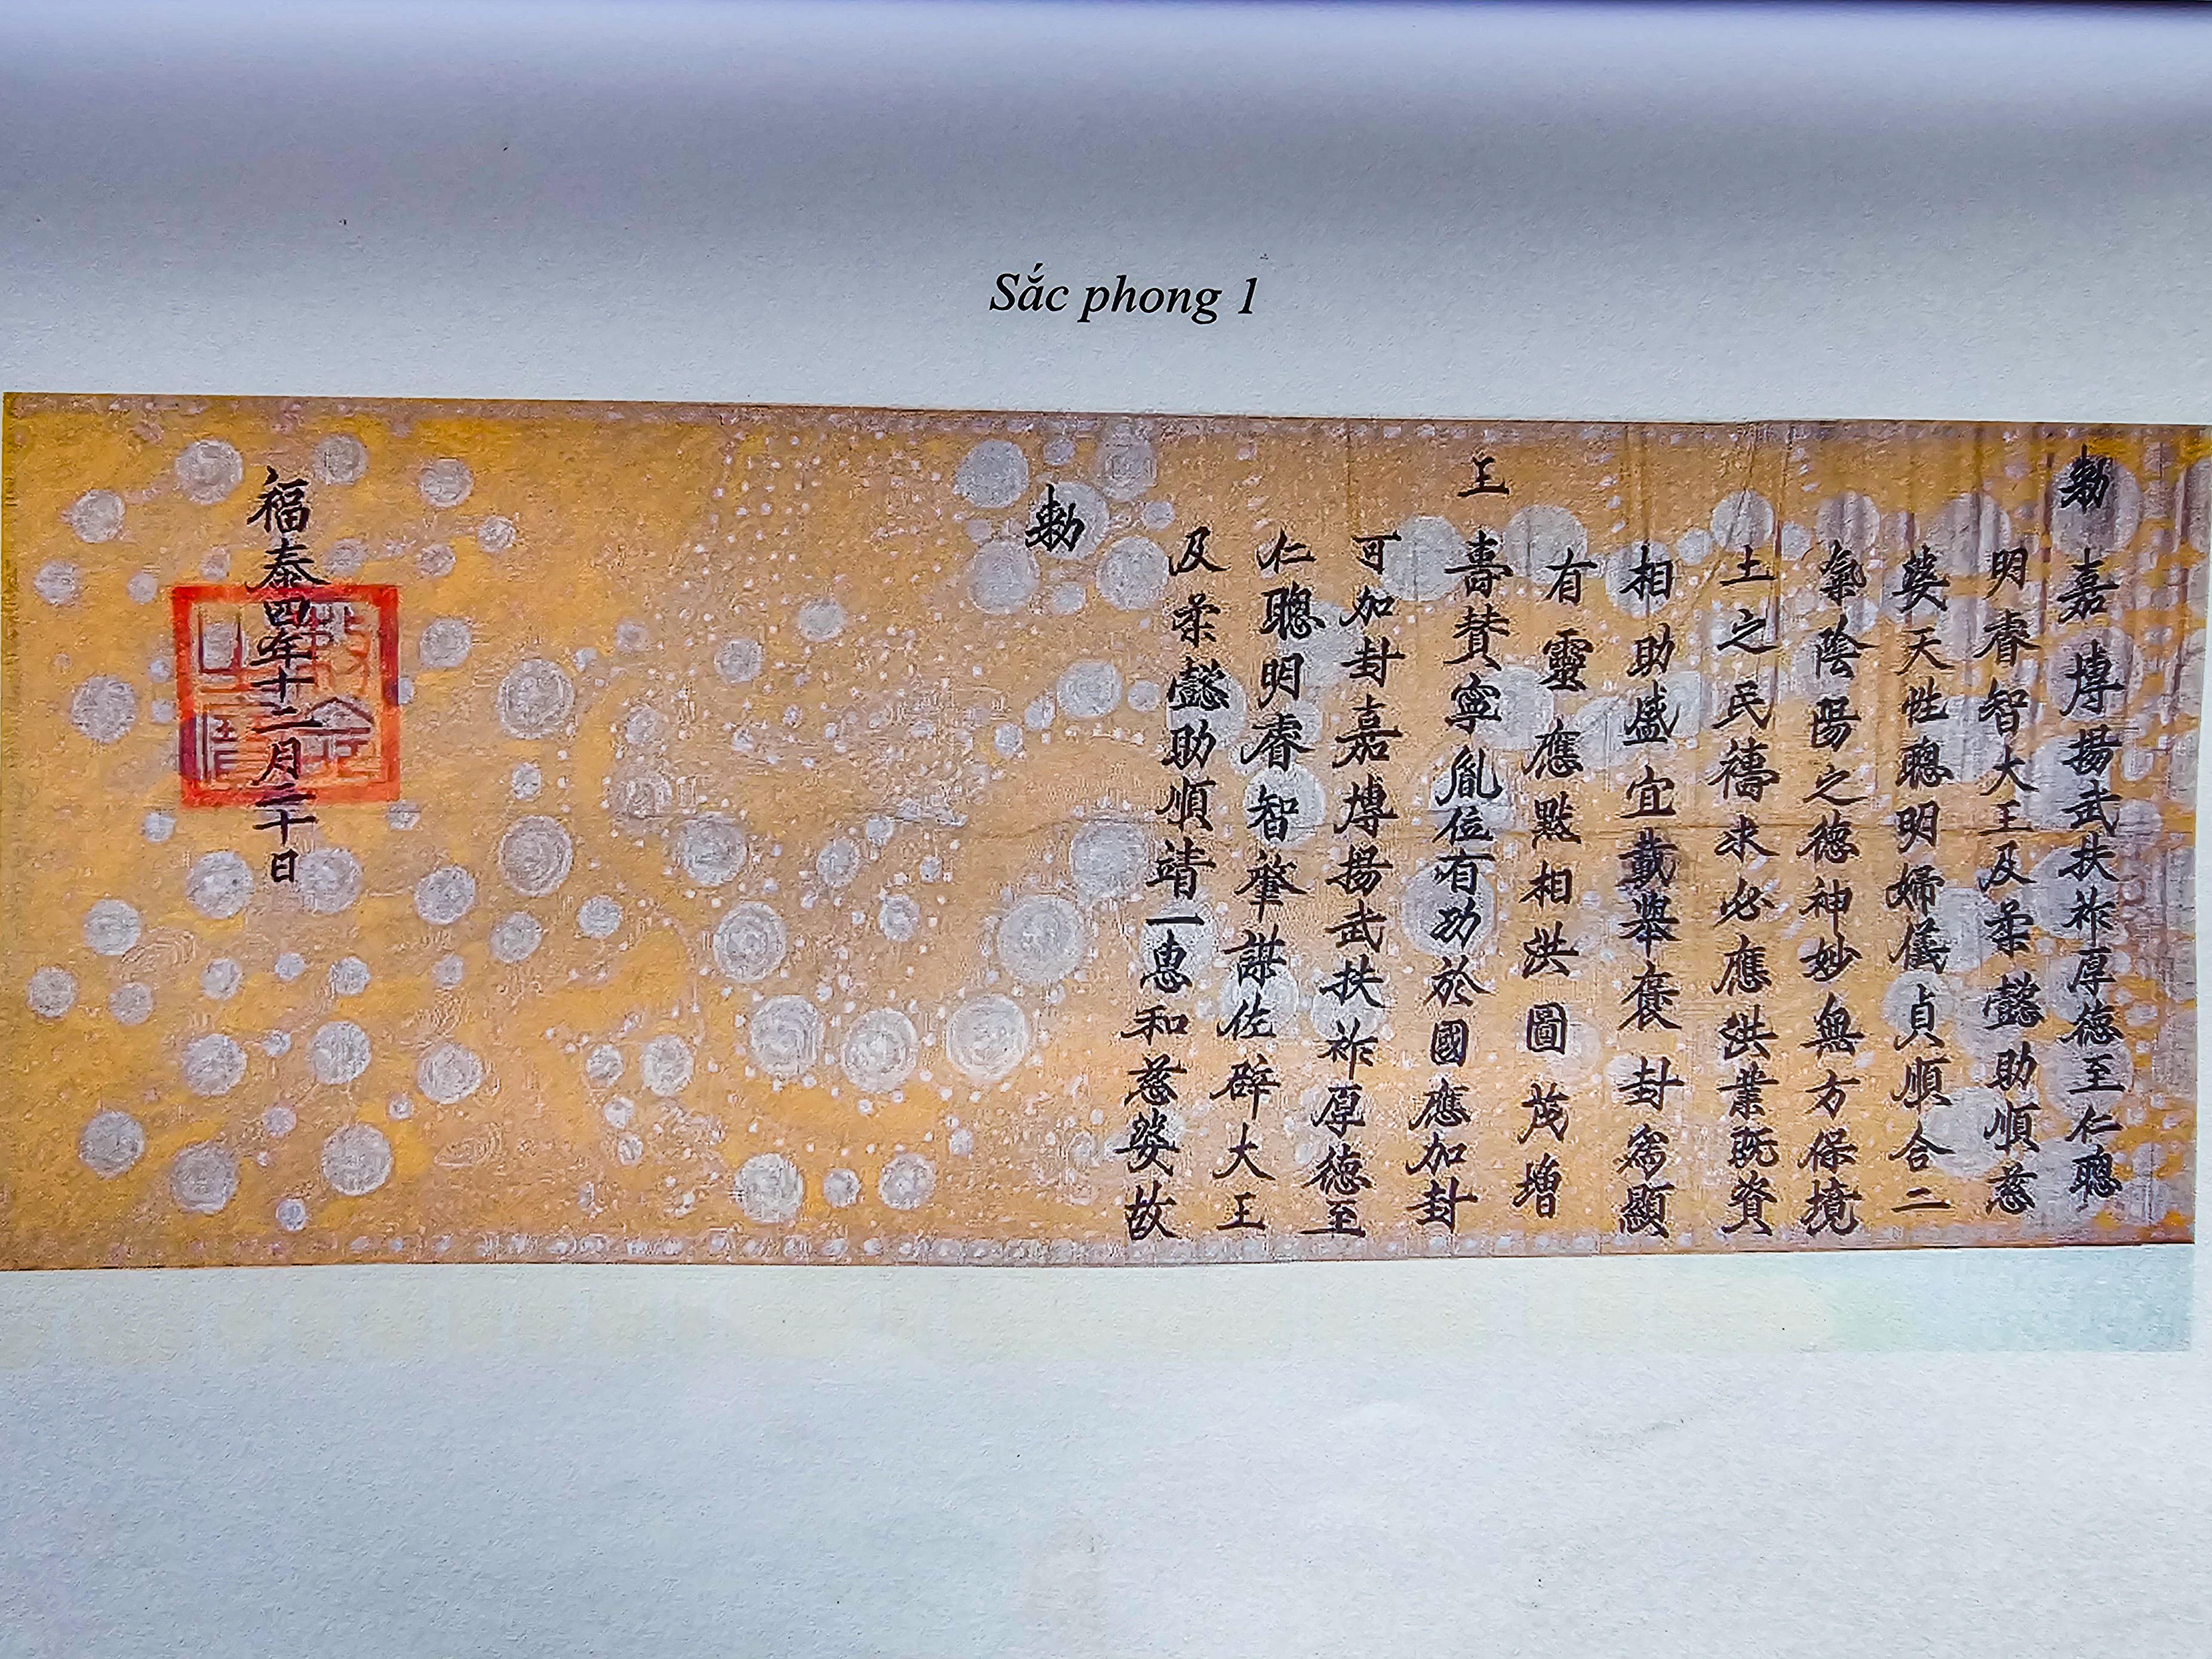 Sắc phong 1
勅嘉博揚武扶祚厚德至仁聰
明睿智大王及柔懿助順慈
婆天性聰明婦儀貞順合二
氣陰陽之德神妙無方保境
土之民禱求必應洪業既資
相助盛宜戴舉褒封爲顯
有靈應黙相洪圖茂增
王壽賛寧胤位有功於國應加封
可加封嘉博揚武扶祚厚德至
仁聰明睿智肇謀佐辟大王
及柔懿助順靖一惠和慈婆故
勅
福泰四年十二月二十日